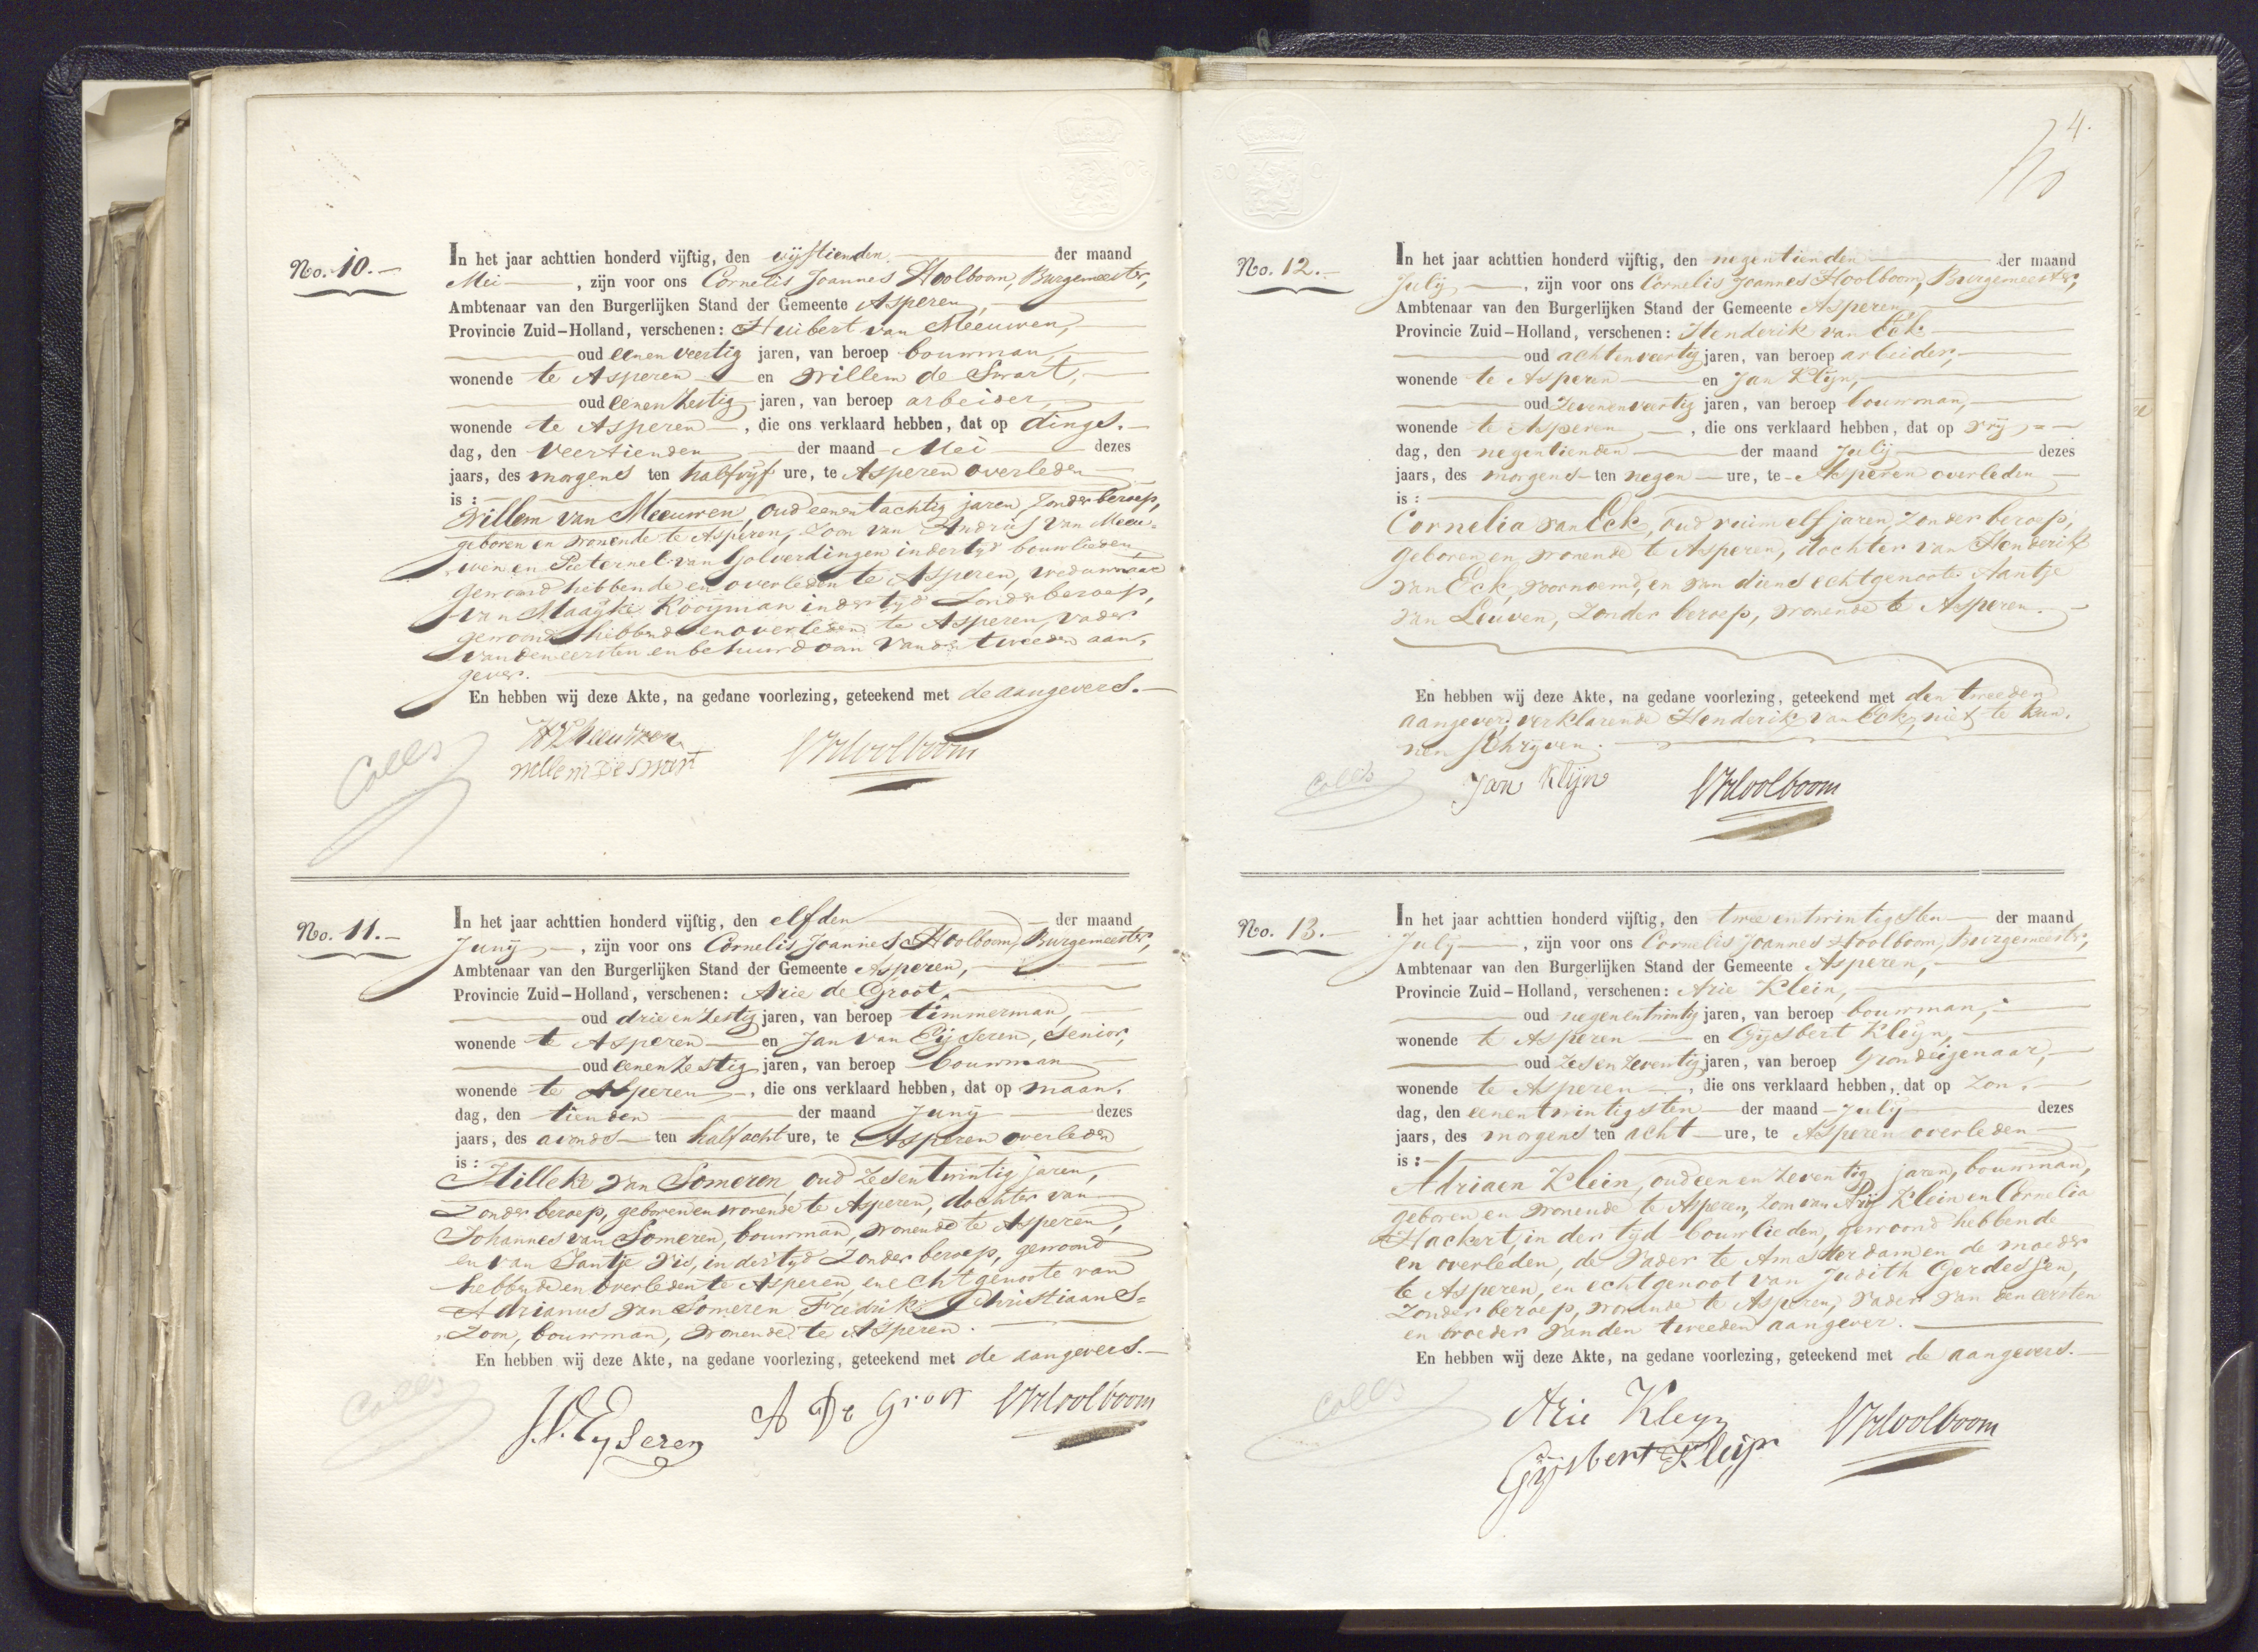 No. 10.
In het jaar achttien honderd vijftig, den vijftienden der maand
Mei, zijn voor ons Cornelis Joannes Hoolboom, Burgemeester,
Ambtenaar van den Burgerlijken Stand der Gemeente Asperen,
Provincie Zuid-Holland, verschenen: Huibert van Meeuwen,
oud eenenveertig jaren, van beroep bouwman,
wonende te Asperen en Willem de Swart,
oud eenenzestig jaren, van beroep arbeider,
wonende te Asperen, die ons verklaard hebben, dat op dings.
dag, den veertienden der maand Mei dezes
jaars, des morgens ten halfvijf ure, te Asperen overleden
is:
Willem van Meeuwen, oud eenentachtig jaren, zonder beroep,
geboren en wonende te Asperen, Zoon van Andries van Meeu-
wen en Pieternel van Golverdingen indertijd bouwlieden
gewoond hebbende en overleden te Asperen, weduwnaar
van Maaijke Kooijman indertijd zonder beroep,
gewoond hebbende en overleden te Asperen, vader
van den eersten en behuurdoom van den tweeden aan-
gever.
En hebben wij deze Akte, na gedane voorlezing, geteekend met de aangevers.
HVMeuwen
willem De swart
Hoolboom
Colls
No. 11.
In het jaar achttien honderd vijftig, den elfden der maand
Junij, zijn voor ons Cornelis Joannes Hoolboom, Burgemeester,
Ambtenaar van den Burgerlijken Stand der Gemeente Asperen,
Provincie Zuid-Holland, verschenen: Arie de Groot,
oud drie en zestig jaren, van beroep timmerman,
wonende te Asperen en Jan van Eijseren, Senior,
oud eenenzestig jaren, van beroep bouwman
wonende te Asperen, die ons verklaard hebben, dat op maan.
dag, den tienden der maand Junij dezes
jaars, des avonds ten half acht ure, te Asperen overleden
is:
Hilleke van Someren, oud zesentwintig jaren,
zonder beroep, geboren en wonende te Asperen, dochter van
Johannes van Someren, bouwman, wonende te Asperen,
en van Jantje Vis, indertijd zonder beroep, gewoond
hebbende en overleden te Asperen, en echtgenoote van
Adrianus van Someren Fredrik Christiaans-
zoon, bouwman, wonende te Asperen.
En hebben wij deze Akte, na gedane voorlezing, geteekend met de aangevers.
J.V. Eyseren
A De Groot
Hoolboom
Colls
4.
No. 12.
In het jaar achttien honderd vijftig, den negentienden der maand
Julij, zijn voor ons Cornelis Joannes Hoolboom, Burgemeester,
Ambtenaar van den Burgerlijken Stand der Gemeente Asperen
Provincie Zuid-Holland, verschenen: Henderik van Eck
oud achtenveertig jaren, van beroep arbeider,
wonende te Asperen en Jan Klijn,
oud zevenenveertig jaren, van beroep bouwman,
wonende te Asperen, die ons verklaard hebben, dat op vrij
dag, den negentienden der maand Julij dezes
jaars, des morgens ten negen ure, te Asperen overleden
is:
Cornelia van Eck, oud ruim elf jaren, zonder beroep,
geboren en wonende te Asperen, dochter van Henderik
van Eck, voornoemd, en van diens echtgenoote Aantje
van Leuven, zonder beroep, wonende te Asperen.
En hebben wij deze Akte, na gedane voorlezing, geteekend met den tweeden
aangever, verklarende Henderik van Eck, niet te kun-
nen schrijven.
Jan Klijn
Hoolboom
Colls
No. 13.
In het jaar achttien honderd vijftig, den twee entwintigsten der maand
Julij, zijn voor ons Cornelis Joannes Hoolboom, Burgemeester,
Ambtenaar van den Burgerlijken Stand der Gemeente Asperen,
Provincie Zuid-Holland, verschenen: Arie Klein,
oud negenentwintig jaren, van beroep bouwman,
wonende te Asperen en Gijsbert Kleijn,
oud zesenzeventig jaren, van beroep Grondeigenaar,
wonende te Asperen, die ons verklaard hebben, dat op zon.
dag, den eenentwintigsten der maand Julij dezes
jaars, des morgens ten acht ure, te Asperen overleden
is:
Adriaen Klein, oud een en zeventig jaren, bouwman,
geboren en wonende te Asperen, Zoon van Arij Klein en Cornelia
Hackert, in der tijd bouwlieden, gewoond hebbende
en overleden, de vader te Amsterdam en de moeder
te Asperen, en echtgenoot van Judith Gerdessen,
zonder beroep, wonende te Asperen, vader van den eersten
en broeder van den tweeden aangever.
En hebben wij deze Akte, na gedane voorlezing, geteekend met de aangevers.
Arie Kleyn
Gijsbert Kleijn
Hoolboom
Colls